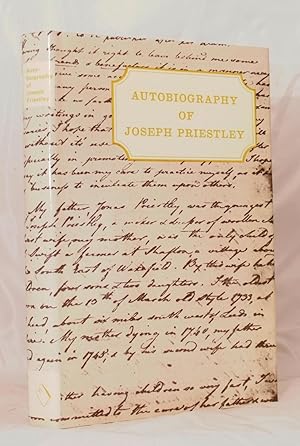 Auto-
biography
of
Joseph
Priestley
AUTOBIOGRAPHY
OF
JOSEPH PRIESTLEY
thought it right to leave behind me some
friends & benefactors it is in a manner
give some
any person
such
my writings in
I hope that
without it's use
especially in
it has been my care to practise myself, as it
business to inculcate them upon others.
My father, Jonas Priestley, was the youngest
Joseph Priestley, a maker & dresser of woollen cloth
wife my mother, was the only child
Swift a farmer at Shafton, a village about
South East of Wakefield. By this wife he had
children, four sons & two daughters. I the oldest
on the 13th of March old style 1733, at
head about six miles south west of Leeds in
My mother dying in 1740, my father
again in 1745, & by his second wife had three
having children so very fast, I was
committed to the care of her father &